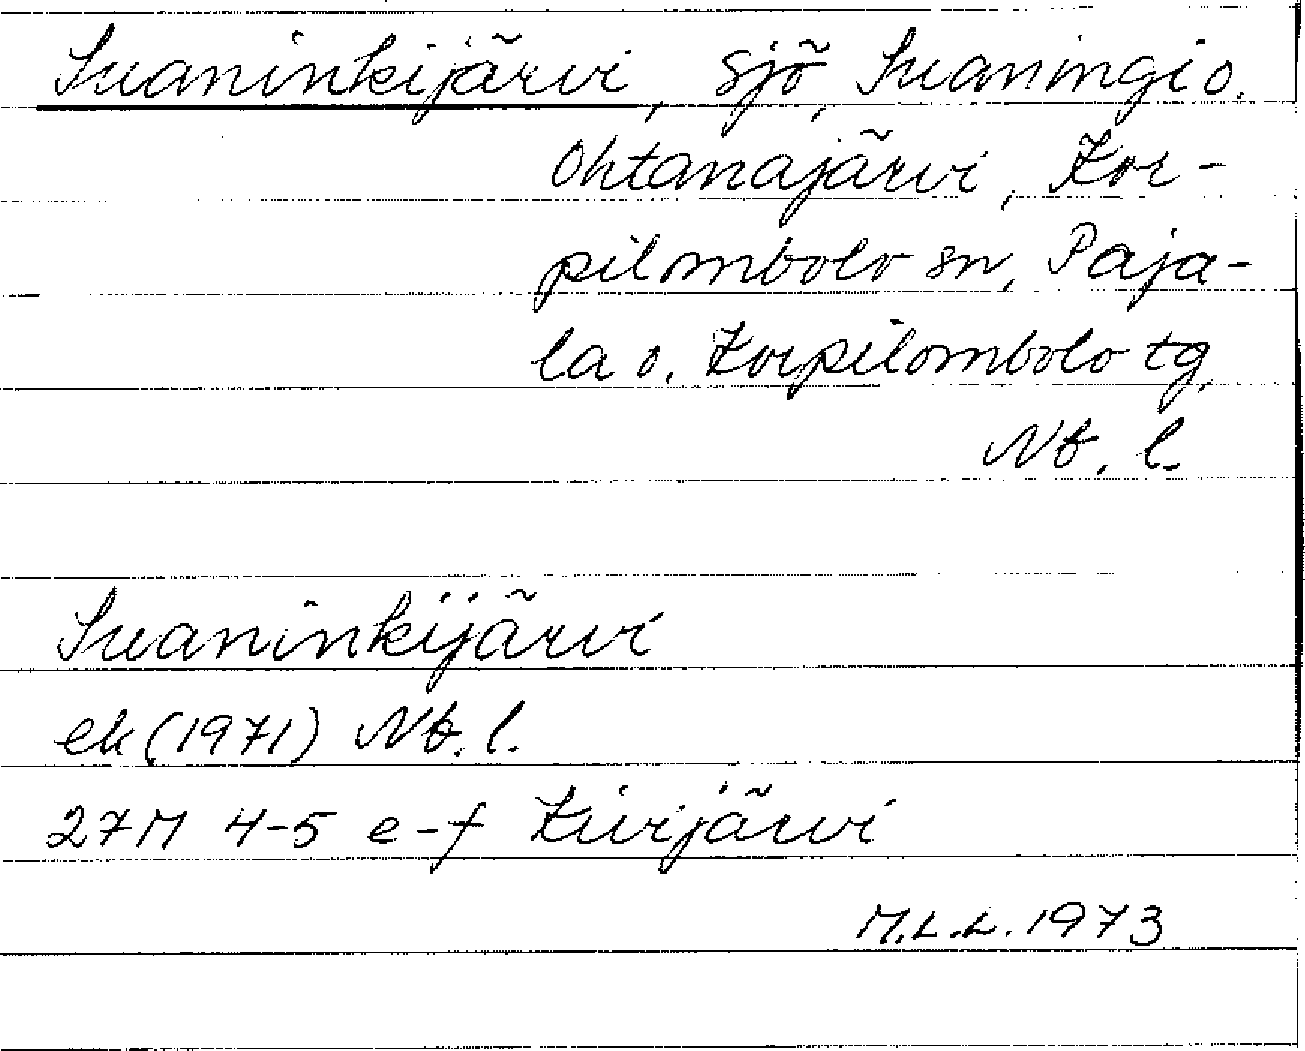 Suaninkijärvi, sjö, Suaningi o.
Ohtanajärvi, Kor-
pilombolo sn, Paja-
la o. Korpilombolo tg,
Nb. l.
Suaninkijärvi
ek (1971) Nb. l.
27M 4-5 e-f Kivijärvi
M.L.L. 1973